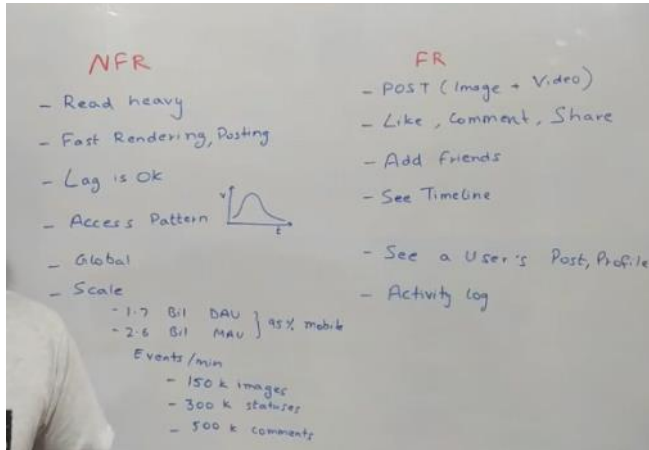 NFR
- Read heavy
- Fast Rendering, Posting
- Lag is Ok
- Access Pattern
v
t
- Global
- Scale
- 1.7 Bil DAU
- 2.6 Bil MAU } 95% mobile
Events/min
- 150k images
- 300k statuses
- 500k comments
FR
- POST (Image + Video)
- Like, Comment, Share
- Add friends
- See Timeline
- See a User's Post, Profile
- Activity log